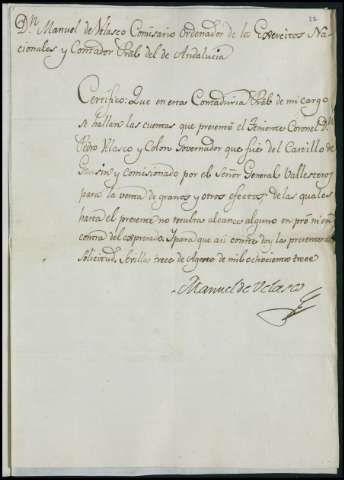 22
Dn. Manuel de Velasco Comisario Ordenador de los Exercitos Na-
cionales y Contador Pral del de Andalucia
Certifico: Que en esta Contaduria Pral de mi cargo
se hallan las cuentas que presentó el Teniente Coronel Dn.
Pedro Velasco y Colon Governador que fué del Castillo de
y comisionado por el Señor General Vallesteros
para la venta de granos y otros efectos, de las quales
hasta el presente no resulta alcance alguno en pró ni en
contra del expresado. Y para que asi conste doy la presente a
solicitud. Sevilla trece de Agosto de mil ochocientos trece
Manuel de Velasco